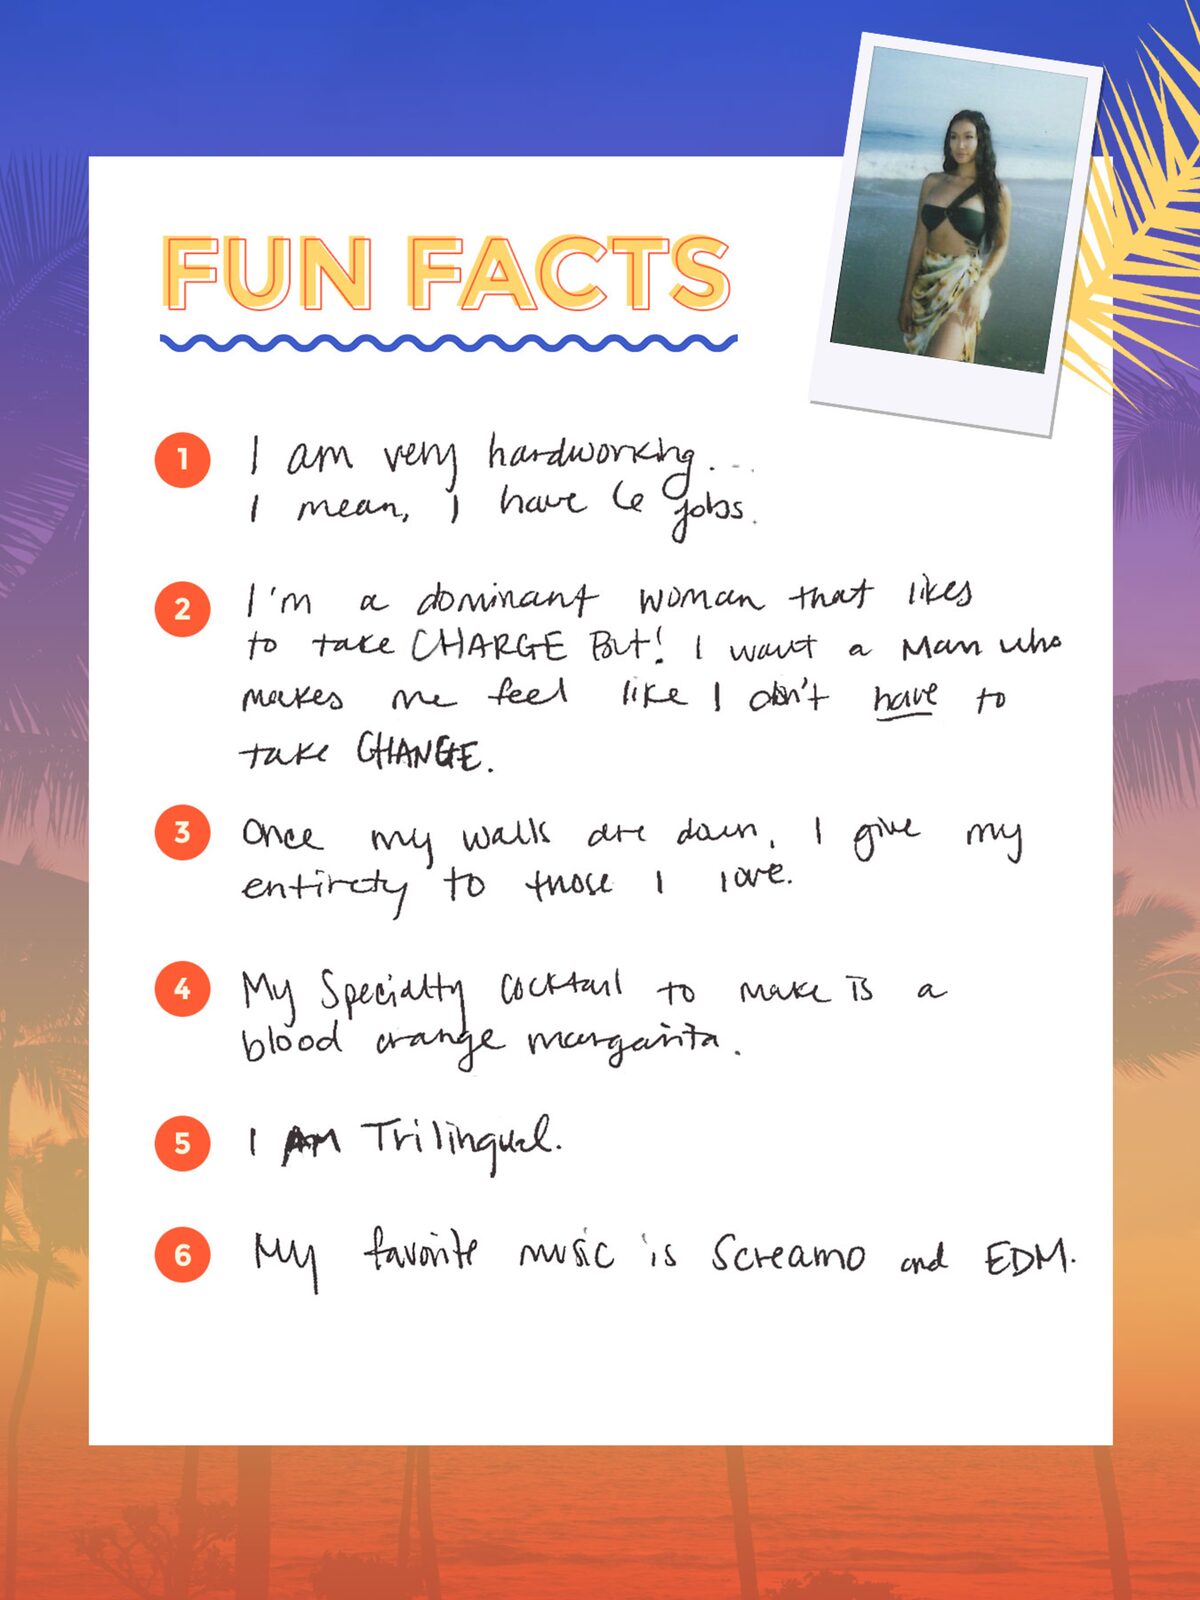 FUN FACTS
1 I am very hardworking...
I mean, I have 6 jobs.
2 I'm a dominant woman that likes
to take CHARGE But! I want a Man who
makes me feel like I don't have to
take CHANGE.
3 Once my walls are down, I give my
entirety to those I love.
4 My Specialty cocktail to make is a
blood orange margarita.
5 I AM Trilingual.
6 My favorite music is Screamo and EDM.